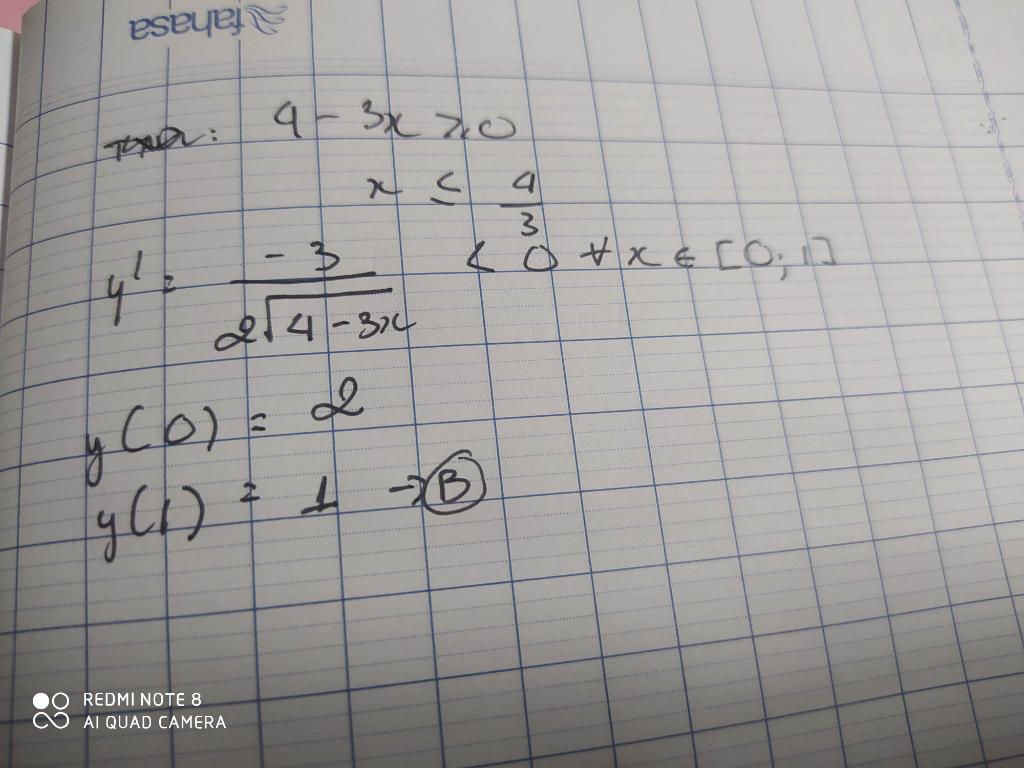 fahasa
4 - 3x ≥ 0
x ≤ 4/3
y' = -3/(2√(4 - 3x)) < 0 ∀ x ∈ [0; 1]
y(0) = 2
y(1) = 1 → B
REDMI NOTE 8
AI QUAD CAMERA